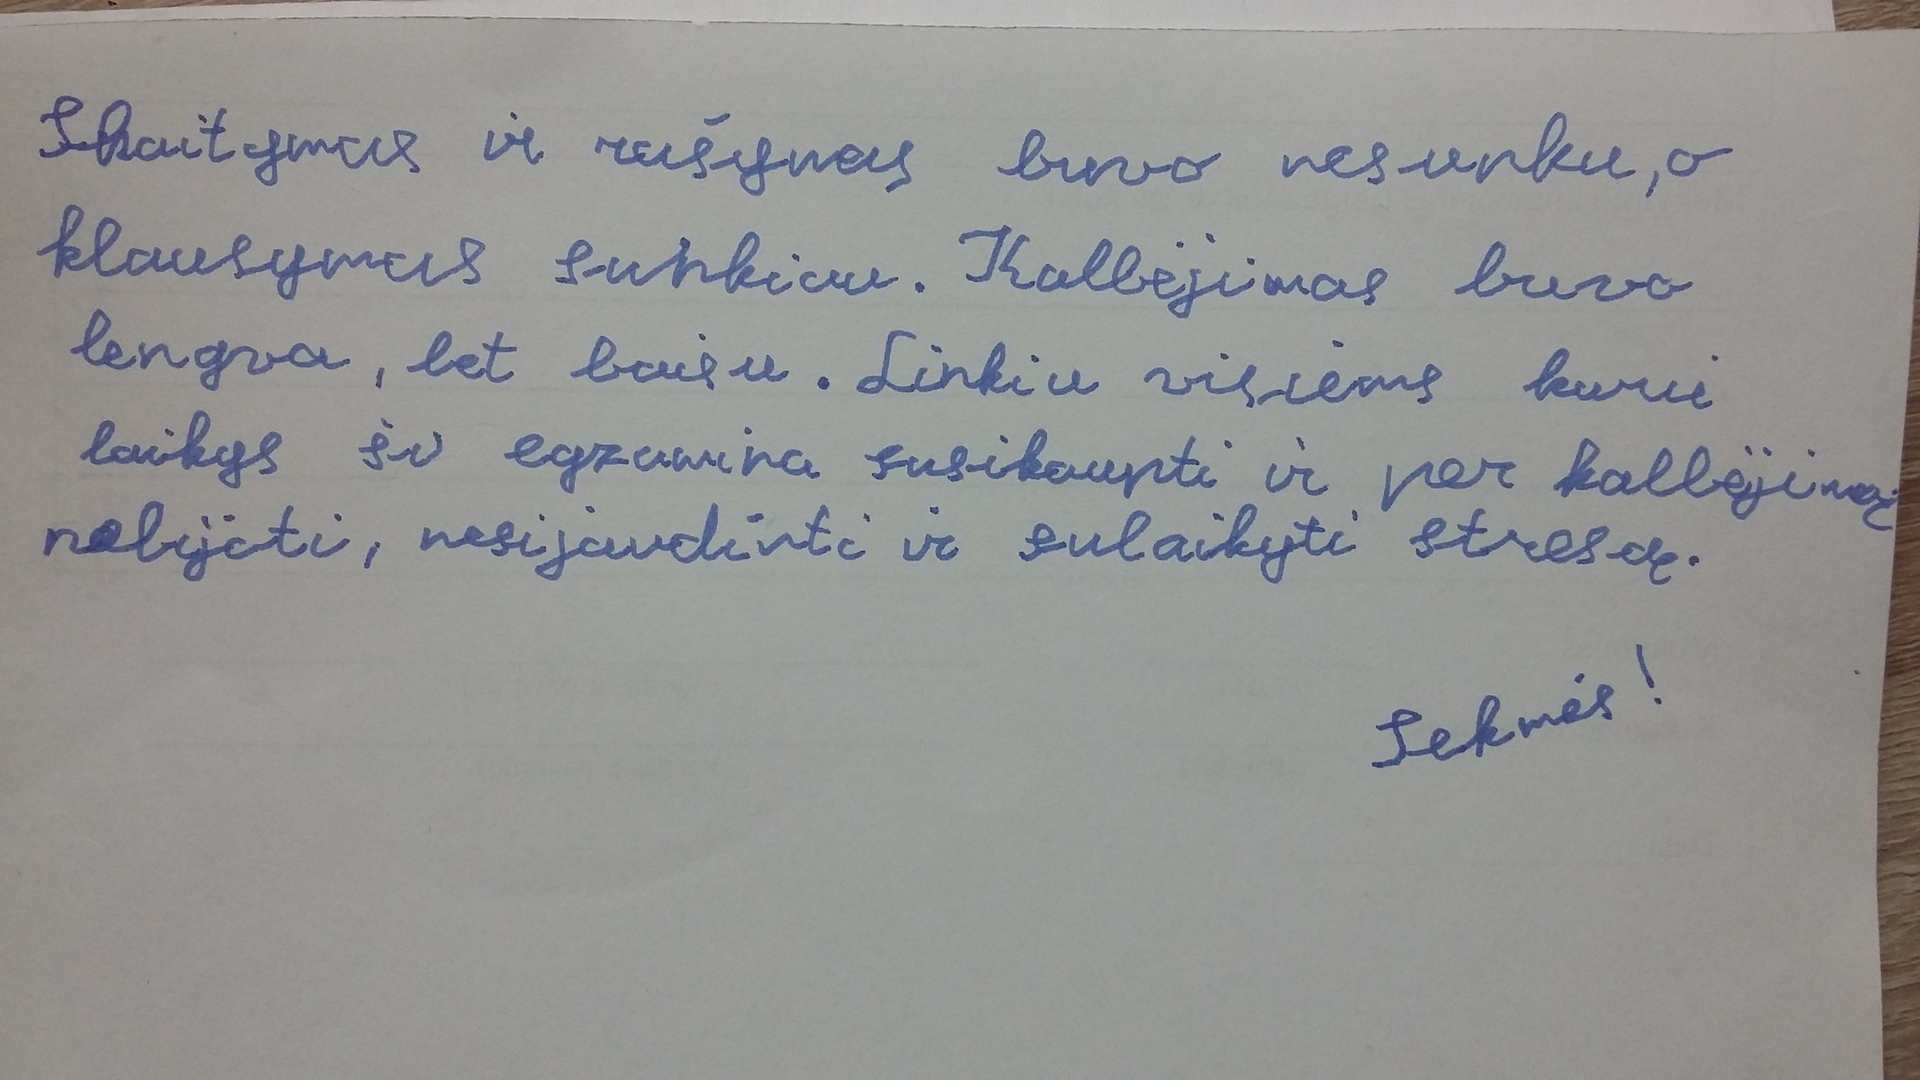 Skaitymas ir rašymas buvo nesunku, o
klausymas sunkiau. Kalbėjimas buvo
lengva, bet baisu. Linkiu visiems kurie
laikys šį egzamina susikaupti ir per kalbėjimą
nebijoti, nesijaudinti ir sulaikyti stresą.
Sekmės!